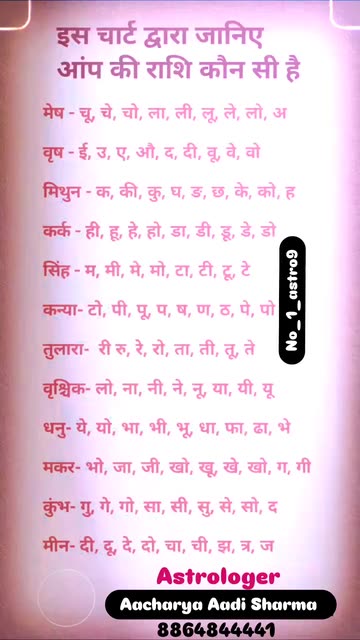 इस चार्ट द्वारा जानिए
आंप की राशि कौन सी है
मेष - चू, चे, चो, ला, ली, लू, ले, लो, अ
वृष - ई, उ, ए, औ, द, दी, वू, वे, वो
मिथुन - क, की, कु, घ, ङ, छ, के, को, ह
कर्क - ही, हू, हे, हो, डा, डी, डू, डे, डो
सिंह - म, मी, मे, मो, टा, टी, टू, टे
कन्या- टो, पी, पू, प, ष, ण, ठ, पे, पो
तुलारा- री रु, रे, रो, ता, ती, तू, ते
वृश्चिक- लो, ना, नी, ने, नू, या, यी, यू
धनु- ये, यो, भा, भी, भू, धा, फा, ढा, भे
मकर- भो, जा, जी, खो, खू, खे, खो, ग, गी
कुंभ- गु, गे, गो, सा, सी, सु, से, सो, द
मीन- दी, दू, दे, दो, चा, ची, झ, त्र, ज
No_1_astro9
Astrologer
Aacharya Aadi Sharma
8864844441